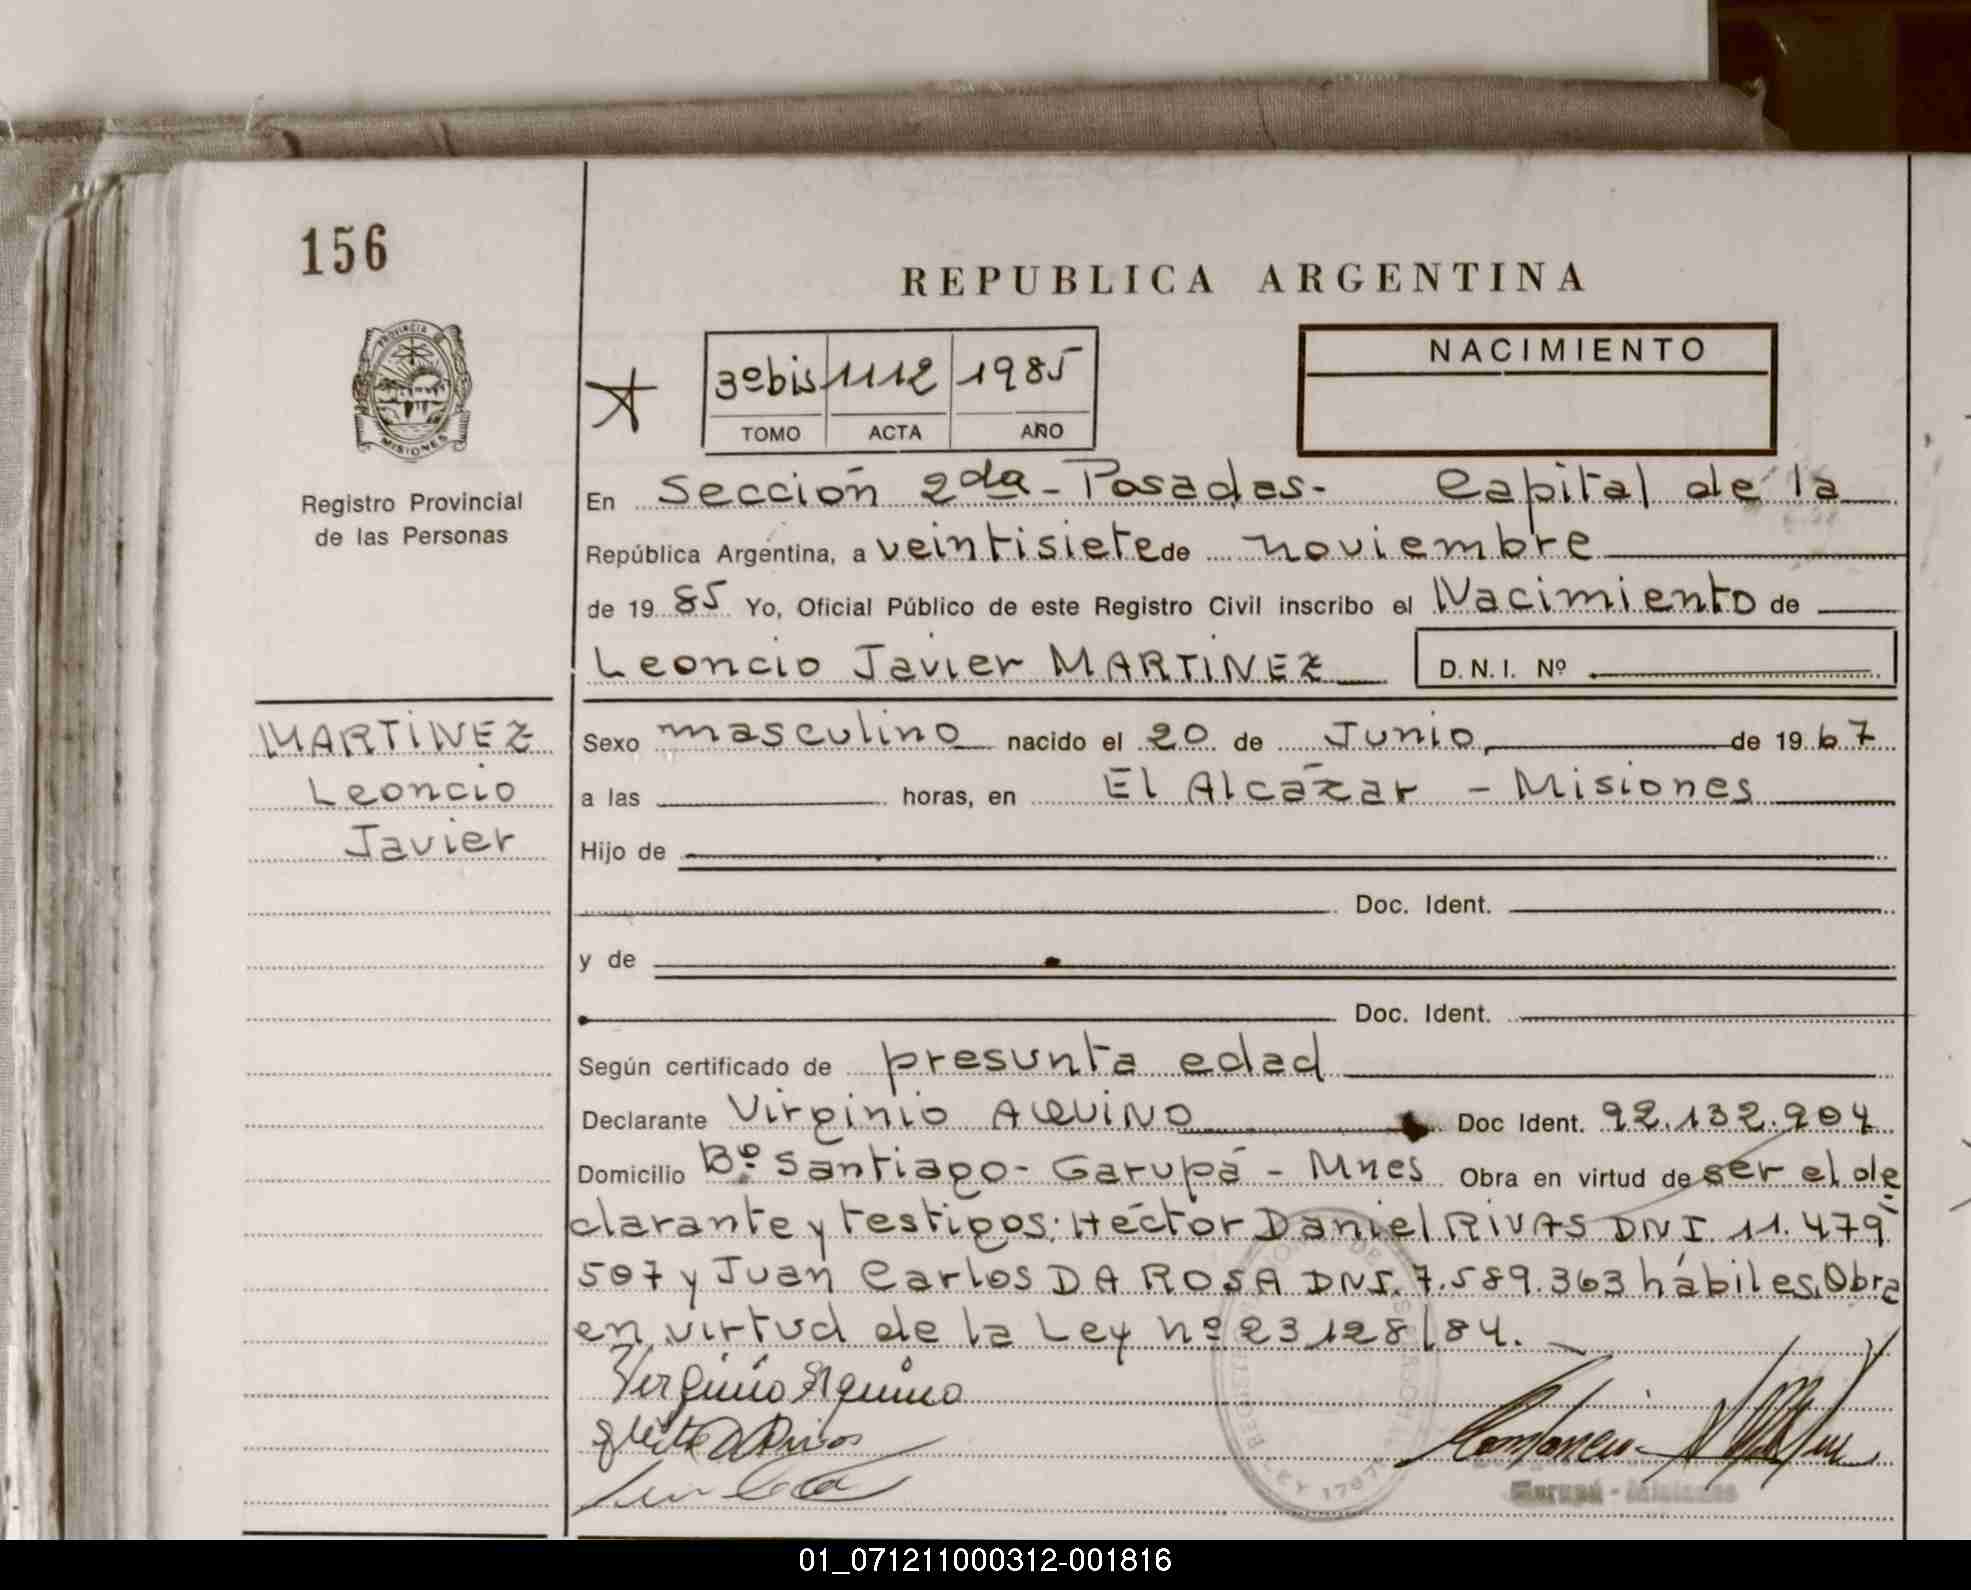 156
REPUBLICA ARGENTINA
PROVINCIA DE
MISIONES
Registro Provincial
de las Personas
3º bis 1112 1985
TOMO ACTA AÑO
NACIMIENTO
En Sección 2da - Posadas - Capital de la
República Argentina, a veintisiete de noviembre
de 19 85 Yo, Oficial Público de este Registro Civil inscribo el Nacimiento de
Leoncio Javier MARTINEZ D.N.I. Nº
MARTINEZ
Leoncio
Javier
Sexo masculino nacido el 20 de Junio, de 19 67
a las horas, en El Alcázar - Misiones
Hijo de
Doc. Ident.
y de
Doc. Ident.
Según certificado de presunta edad
Declarante Virginio AQUINO Doc Ident. 92.132.904
Domicilio Bº Santiago - Garupá - Mnes Obra en virtud de ser el de
clarante y testigos: Héctor Daniel RIVAS DNI 11.479
507 y Juan Carlos DA ROSA DNI. 7.589.363 hábiles. Obra
en virtud de la Ley nº 23128/84.
Virginio Aquino
Garupá - Misiones
01_071211000312-001816